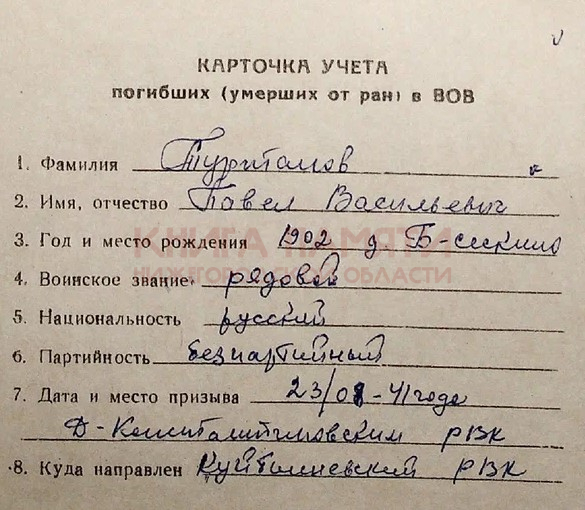 КАРТОЧКА УЧЕТА
погибших (умерших от ран) в ВОВ
1. Фамилия
2. Имя, отчество Павел Васильевич
3. Год и место рождения 1902 д.
КНИГА ПАМЯТИ
НИЖЕГОРОДСКОЙ ОБЛАСТИ
4. Воинское звание рядовой
5. Национальность русский
6. Партийность беспартийный
7. Дата и место призыва 23/08-41 года
РВК
8. Куда направлен РВК